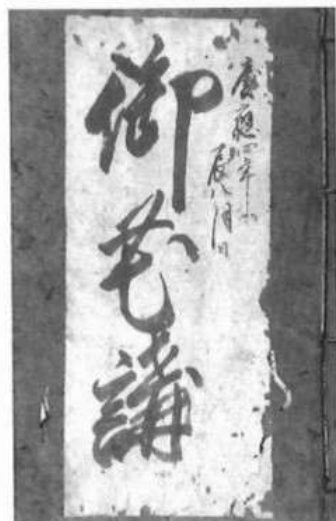 慶應四年
辰八月日
御花講